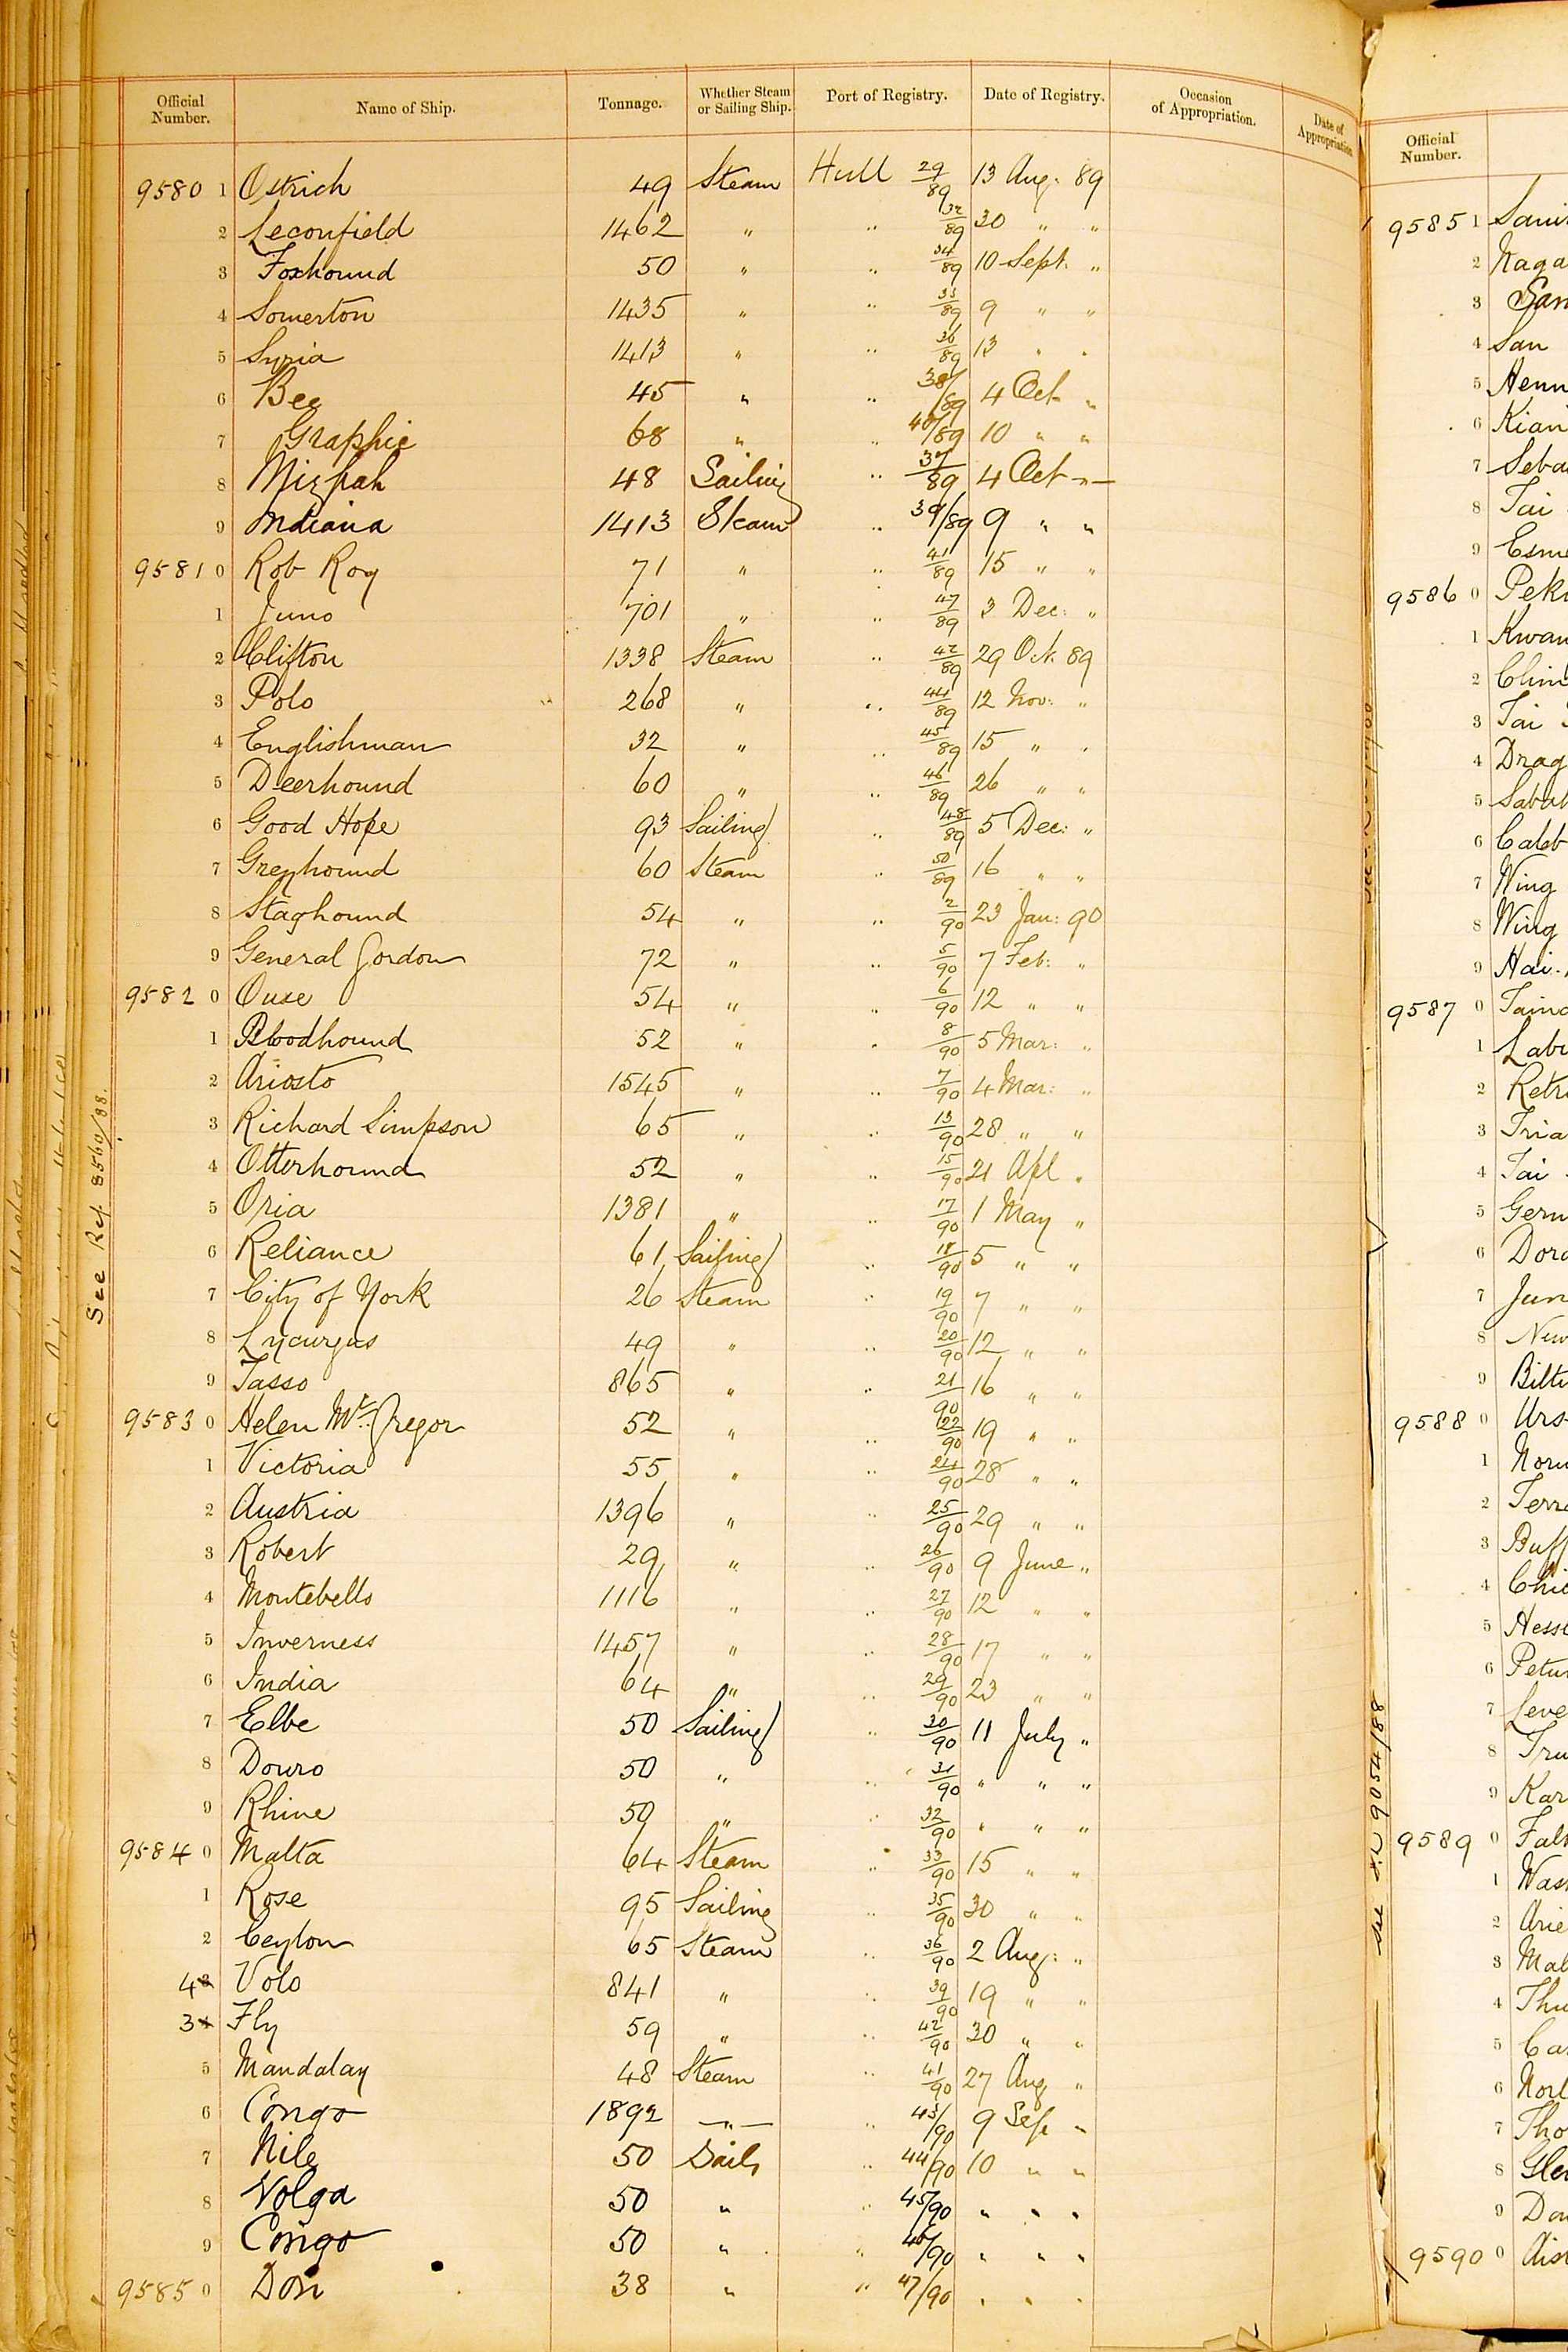 Official Number. Name of Ship. Tonnage. Whether Steam or Sailing Ship. Port of Registry. Date of Registry. Occasion of Appropriation. Date of Appropriation
9580 1 Ostrich 49 Steam Hull 29/89 13 Aug: 89
2 Leconfield 1462 " " 32/89 30 " "
3 Foxhound 50 " " 34/89 10 Sept. "
4 Somerton 1435 " " 33/89 9 " "
5 Syria 1413 " " 36/89 13 " "
6 Bee 45 " " 38/89 4 Oct "
7 Graphic 68 " " 40/89 10 " "
8 Mizpah 48 Sailing " 37/89 4 Oct "
9 Indiana 1413 Steam " 39/89 9 " "
9581 0 Rob Roy 71 " " 41/89 15 " "
1 Juno 701 " " 47/89 3 Dec: "
2 Clifton 1338 Steam " 42/89 29 Oct. 89
3 Polo 268 " " 44/89 12 Nov: "
4 Englishman 32 " " 45/89 15 " "
5 Deerhound 60 " " 46/89 26 " "
6 Good Hope 93 Sailing " 48/89 5 Dec: "
7 Greyhound 60 Steam " 50/89 16 " "
8 Staghound 54 " " 2/90 23 Jan: 90
9 General Gordon 72 " " 5/90 7 Feb: "
9582 0 Ouse 54 " " 6/90 12 " "
1 Bloodhound 52 " " 8/90 5 Mar: "
2 Ariosto 1545 " " 7/90 4 Mar: "
3 Richard Simpson 65 " " 13/90 28 " "
4 Otterhound 52 " " 15/90 21 Apl "
5 Oria 1381 " " 17/90 1 May "
6 Reliance 61 Sailing " 18/90 5 " "
7 City of York 26 Steam " 19/90 7 " "
8 Lycurgus 49 " " 20/90 12 " "
9 Tasso 865 " " 21/90 16 " "
9583 0 Helen McGregor 52 " " 22/90 19 " "
1 Victoria 55 " " 24/90 28 " "
2 Austria 1396 " " 25/90 29 " "
3 Robert 29 " " 26/90 9 June "
4 Montebello 1116 " " 27/90 12 " "
5 Inverness 1457 " " 28/90 17 " "
6 India 64 " " 29/90 23 " "
7 Elbe 50 Sailing " 30/90 11 July "
8 Douro 50 " " 31/90 " " "
9 Rhine 50 " " 32/90 " " "
9584 0 Malta 64 Steam " 33/90 15 " "
1 Rose 95 Sailing " 35/90 30 " "
2 Ceylon 65 Steam " 36/90 2 Aug: "
4 Volo 841 " " 39/90 19 " "
3 Fly 59 " " 42/90 30 " "
5 Mandalay 48 Steam " 41/90 27 Aug "
6 Congo 1892 " " 43/90 9 Sep "
7 Nile 50 Sails " 44/90 10 " "
8 Volga 50 " " 45/90 " " "
9 Congo 50 " " 46/90 " " "
9585 0 Don 38 " " 47/90 " " "
See Ref 8560/88.
Official Number.
9585 1
2 Naga
3 San
4 San
5 Henn
6 Kian
7 Seba
8 Tai
9 Esme
9586 0 Peki
1 Kwan
2 Chin
3 Tai
4 Drag
5 Sabah
6 Caleb
7 Wing
8 Wing
9 Hai
9587 0 Taina
1 Labu
2 Retri
3 Tria
4 Tai
5 Germ
6 Dora
7 Jun
8 New
9 Bilt
9588 0 Urs
1 Norm
2 Terr
3 Buff
4 Chic
5 Hess
6 Petu
7 Leve
8 Tru
9 Kar
9589 0 Fal
1 Was
2 Arie
3 Mal
4 Thu
5 Ca
6 Nort
7 Tho
8 Gle
9 Do
9590 0
9054/88